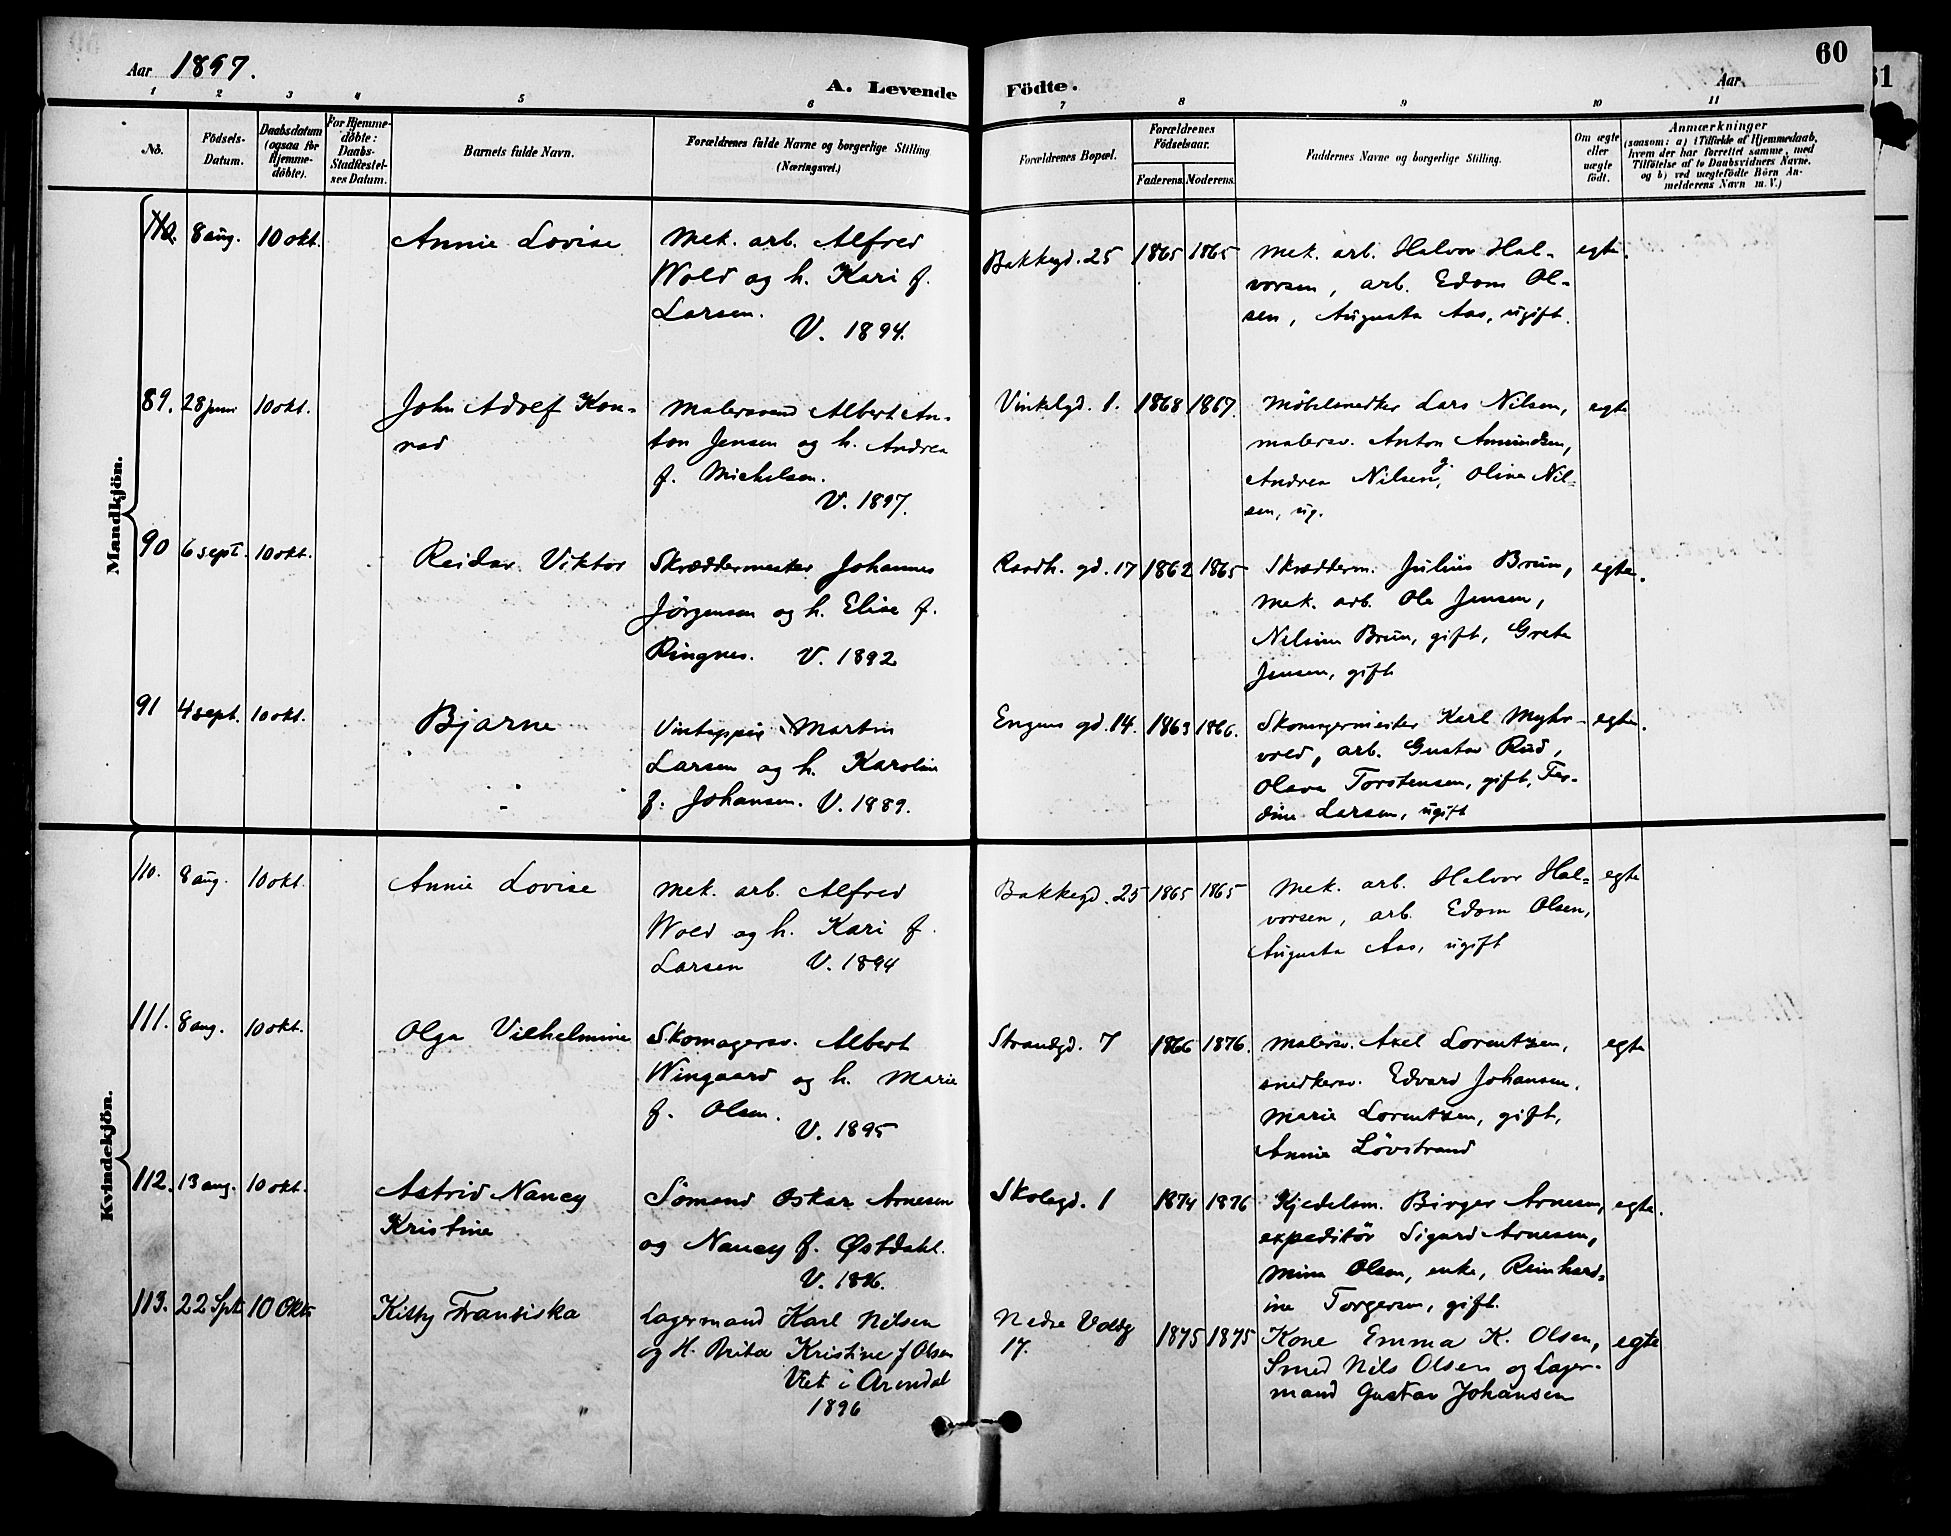 Aar 1897.
A. Levende Födte.
Aar
60
1 2 3 4 5 6 7 8 9 10 11
No.
Födsels-Datum.
Daabsdatum (ogsaa for Hjemme-döbte).
For Hjemme-döbte: Daabs-Stadfæstel-ses Datum.
Barnets fulde Navn.
Forældrenes fulde Navne og borgerlige Stilling (Næringsvei.)
Forældrenes Bopæl.
Forældrenes Födselsaar.
Faderens. Moderens.
Faddernes Navne og borgerlige Stilling.
Om ægte eller uægte födt.
Anmærkninger
(saasom: a) i Tilfælde af Hjemmedaab,
hvem der har forrettet samme, med
Tilföielse af to Daabsvidners Navne,
og b) ved uægtefödte Börn An-
melderens Navn m. V.)
Mandkjön.
110. 8 aug. 10 okt. Annie Lovise
Mek. arb. Alfred
Wold og h. Kari f.
Larsen.
V. 1894.
Bakkegd. 25 1865 1865
Mek. arb. Halvor Hal-
vorsen, arb. Edom Ol-
sen, Augusta Aas, ugift.
egte.
89. 28 juni 10 okt. John Adolf Kon-
rad
Malersvend Albert An-
ton Jensen og h. Andrea
f. Michelsen.
V. 1897.
Vinkelgd. 1. 1868 1867.
Möbelsnedker Lars Nilsen,
malersv. Anton Amundsen,
Andrea Nilsen, g. Oline Nil-
sen, ug.
egte
90 6 sept. 10 okt. Reidar Viktor
Skræddermester Johannes
Jörgensen og h. Elise f.
Ringnes. V. 1892
Raadh. gd. 17 1862 1865
Skrædderm. Julius Brun,
Mek. arb. Ole Jensen,
Nilsine Brun, gift, Grete
Jensen, gift
egte.
91 4 sept. 10 okt. Bjarne
Vintapper Martin
Larsen og h. Karoline
f. Johansen. V. 1889.
Engens gd. 14. 1863 1866.
Skomagermester Karl Myhr-
vold, arb. Gustav Rud,
Olava Torstensen, gift, Fer-
dine Larsen, ugift
egte.
Kvindekjön.
110. 8 aug. 10 okt. Annie Lovise
Mek. arb. Alfred
Wold og h. Kari f.
Larsen V. 1894
Bakkegd. 25 1865 1865
Mek. arb. Halvor Hal-
vorsen, arb. Edom Olsen,
Augusta Aas, ugift
egte
111. 8 aug. 10 okt. Olga Vilhelmine
Skomagersv. Albert
Wingaard og h. Marie
f. Olsen.
V. 1895
Strandgd. 7 1866 1876.
Malersv. Axel Lorentzen,
snedkersv. Edvard Johansen,
Marie Lorentzen, gift,
Annie Lövstrand
egte
112. 13 aug. 10 okt. Astrid Nancy
Kristine
Sömand Oskar Arnesen
og Nancy f. Østdahl.
V. 1896.
Skolegd. 1 1874 1876
Kjedelsm. Birger Arnesen,
expeditör Sigurd Arnesen,
Mina Olsen, enke, Reinhard-
ine Torgersen, gift.
egte.
113. 22 Spt 10 Okt Kitty Fransiska
Lagermand Karl Nilsen
og H. Brita Kristine f Olsen
Viet i Arendal
1896
Nedre Voldg
17. 1875 1875
Kone Emma K. Olsen,
Smed Nils Olsen og Lager-
mand Gustav Johansen
egte